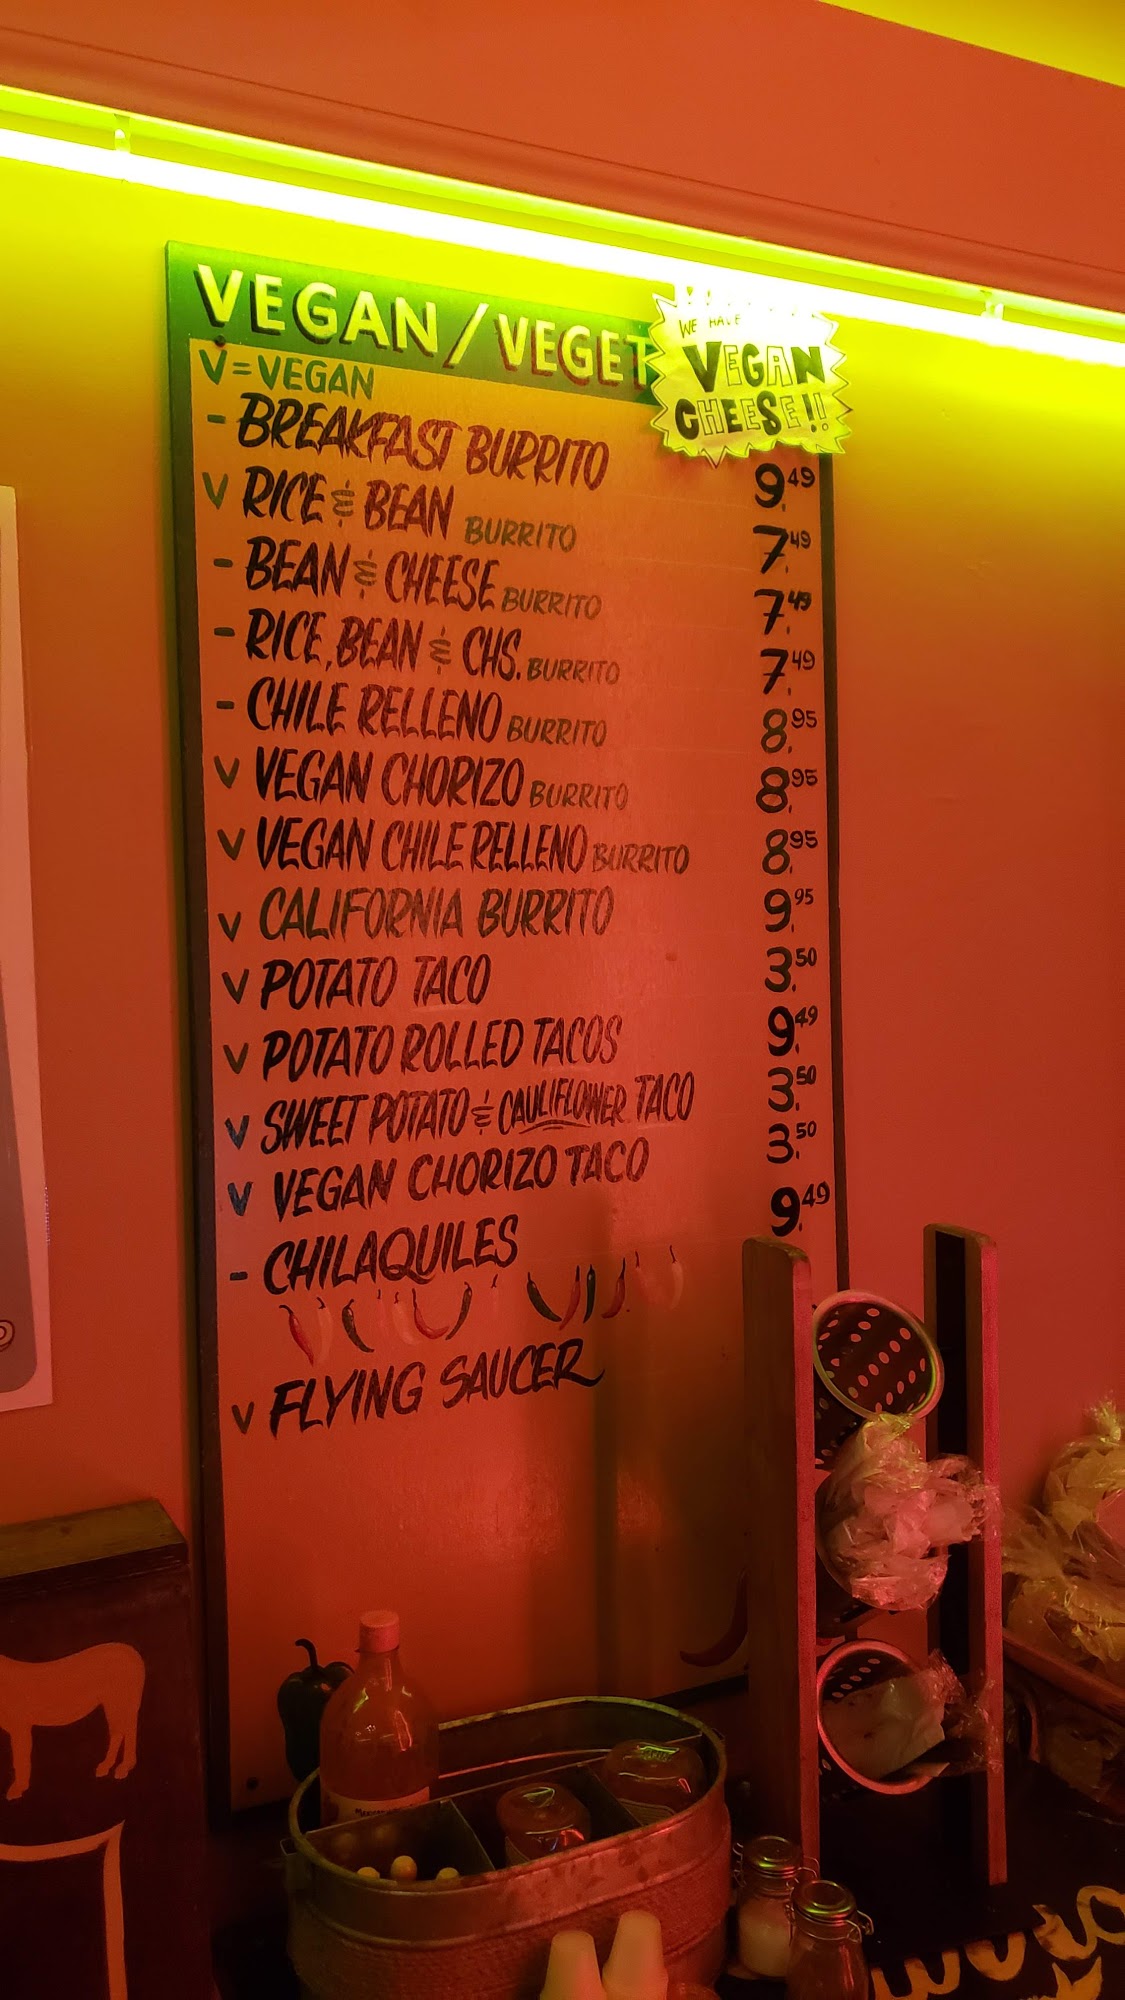 VEGAN / VEGET
WE HAVE
VEGAN
CHEESE!!
V=VEGAN
- BREAKFAST BURRITO 9.49
V RICE & BEAN BURRITO 7.49
- BEAN & CHEESE BURRITO 7.49
- RICE, BEAN & CHS. BURRITO 7.49
- CHILE RELLENO BURRITO 8.95
V VEGAN CHORIZO BURRITO 8.95
V VEGAN CHILE RELLENO BURRITO 8.95
V CALIFORNIA BURRITO 9.95
V POTATO TACO 3.50
V POTATO ROLLED TACOS 9.49
V SWEET POTATO & CAULIFLOWER TACO 3.50
V VEGAN CHORIZO TACO 3.50
- CHILAQUILES 9.49
V FLYING SAUCER